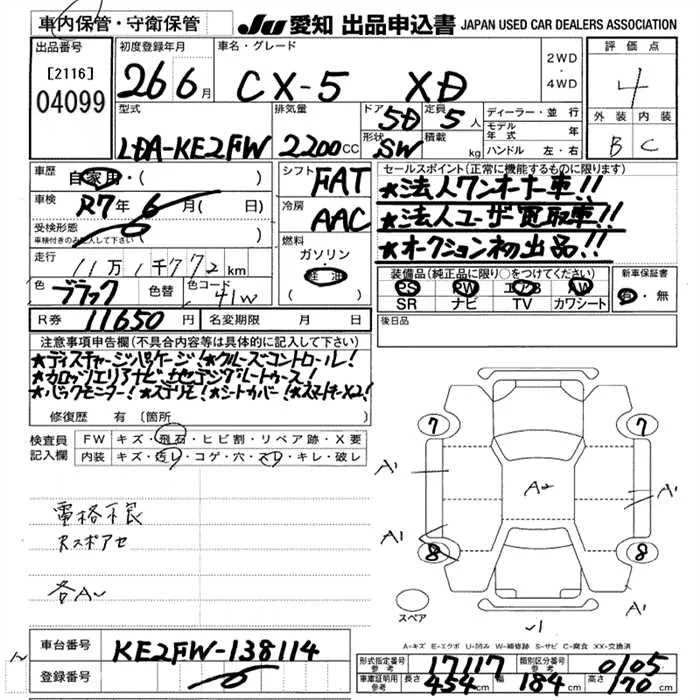 車内保管・守衛保管
JU 愛知 出品申込書 JAPAN USED CAR DEALERS ASSOCIATION
出品番号
[2116]
04099
初度登録年月
26年 6月
車名・グレード
CX-5 XD
2WD
・
4WD
評価点
4
外装 内装
B C
型式
LDA-KE2FW
排気量
2200CC
ドア 5D
形状 SW
定員 5人
積載 kg
ディーラー・並行
モデル年式 年
ハンドル 左・右
車歴 自家用・( )
車検 R7年 6月( 日)
受検形態
車検付きのみ記入して下さい
走行 11万1千772km
色 ブラック 色替 色コード 41W
シフト FAT
冷房 AAC
燃料
ガソリン
・
軽油
( )
セールスポイント(正常に機能するものに限ります)
★法人ワンオーナー車!!
★法人ユーザー買取車!!
★オークション初出品!!
装備品(純正品に限り○をつけてください)
PS PW エアB AW
SR ナビ TV カワシート
新車保証書
有・無
R券 11650円 名変期限 月 日
後日品
注意事項申告欄(不具合内容等は具体的に記入して下さい)
★ディスチャージパッケージ!★クルーズコントロール!
★カロッツエリアナビ!★地デジ!★
★バックモニター!★スマリモ!★シートカバー!★スマートキーX2!
修復歴 有〔箇所
検査員記入欄
FW キズ・飛石・ヒビ割・リペア跡・X要
内装 キズ・汚レ・コゲ・穴・スレ・キレ・破レ
電格不良
Rスポアセ
各A〜
7 7
A1 A2 A1
A1 A1
8 8
A1
スペア
✓1
A-キズ E-エクボ U-凹み W-補修跡 S-サビ C-腐食 XX-交換済
車台番号 KE2FW-138114
登録番号
形式指定番号 参考 17117 類別区分番号 参考 0105
車庫証明用 参考 長さ 454cm 幅 184cm 高さ 170cm